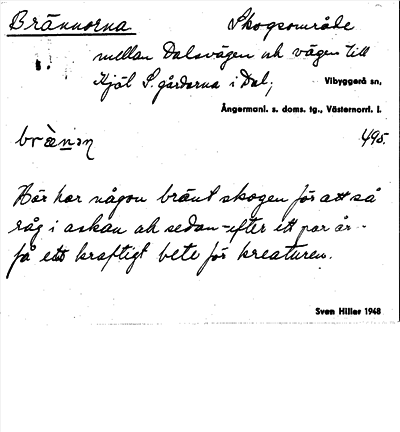 Brännorna Skogsområde
mellan Dalsvägen och vägen till
Kjäl S. gårdarna i Dal;
Vibyggerå sn,
Ångermanl. s. doms. tg., Västernorrl. l.
495.
Här har någon bränt skogen för att så
råg i askan och sedan - efter ett par år -
få ett kraftigt bete för kreaturen.
Sven Hiller 1948